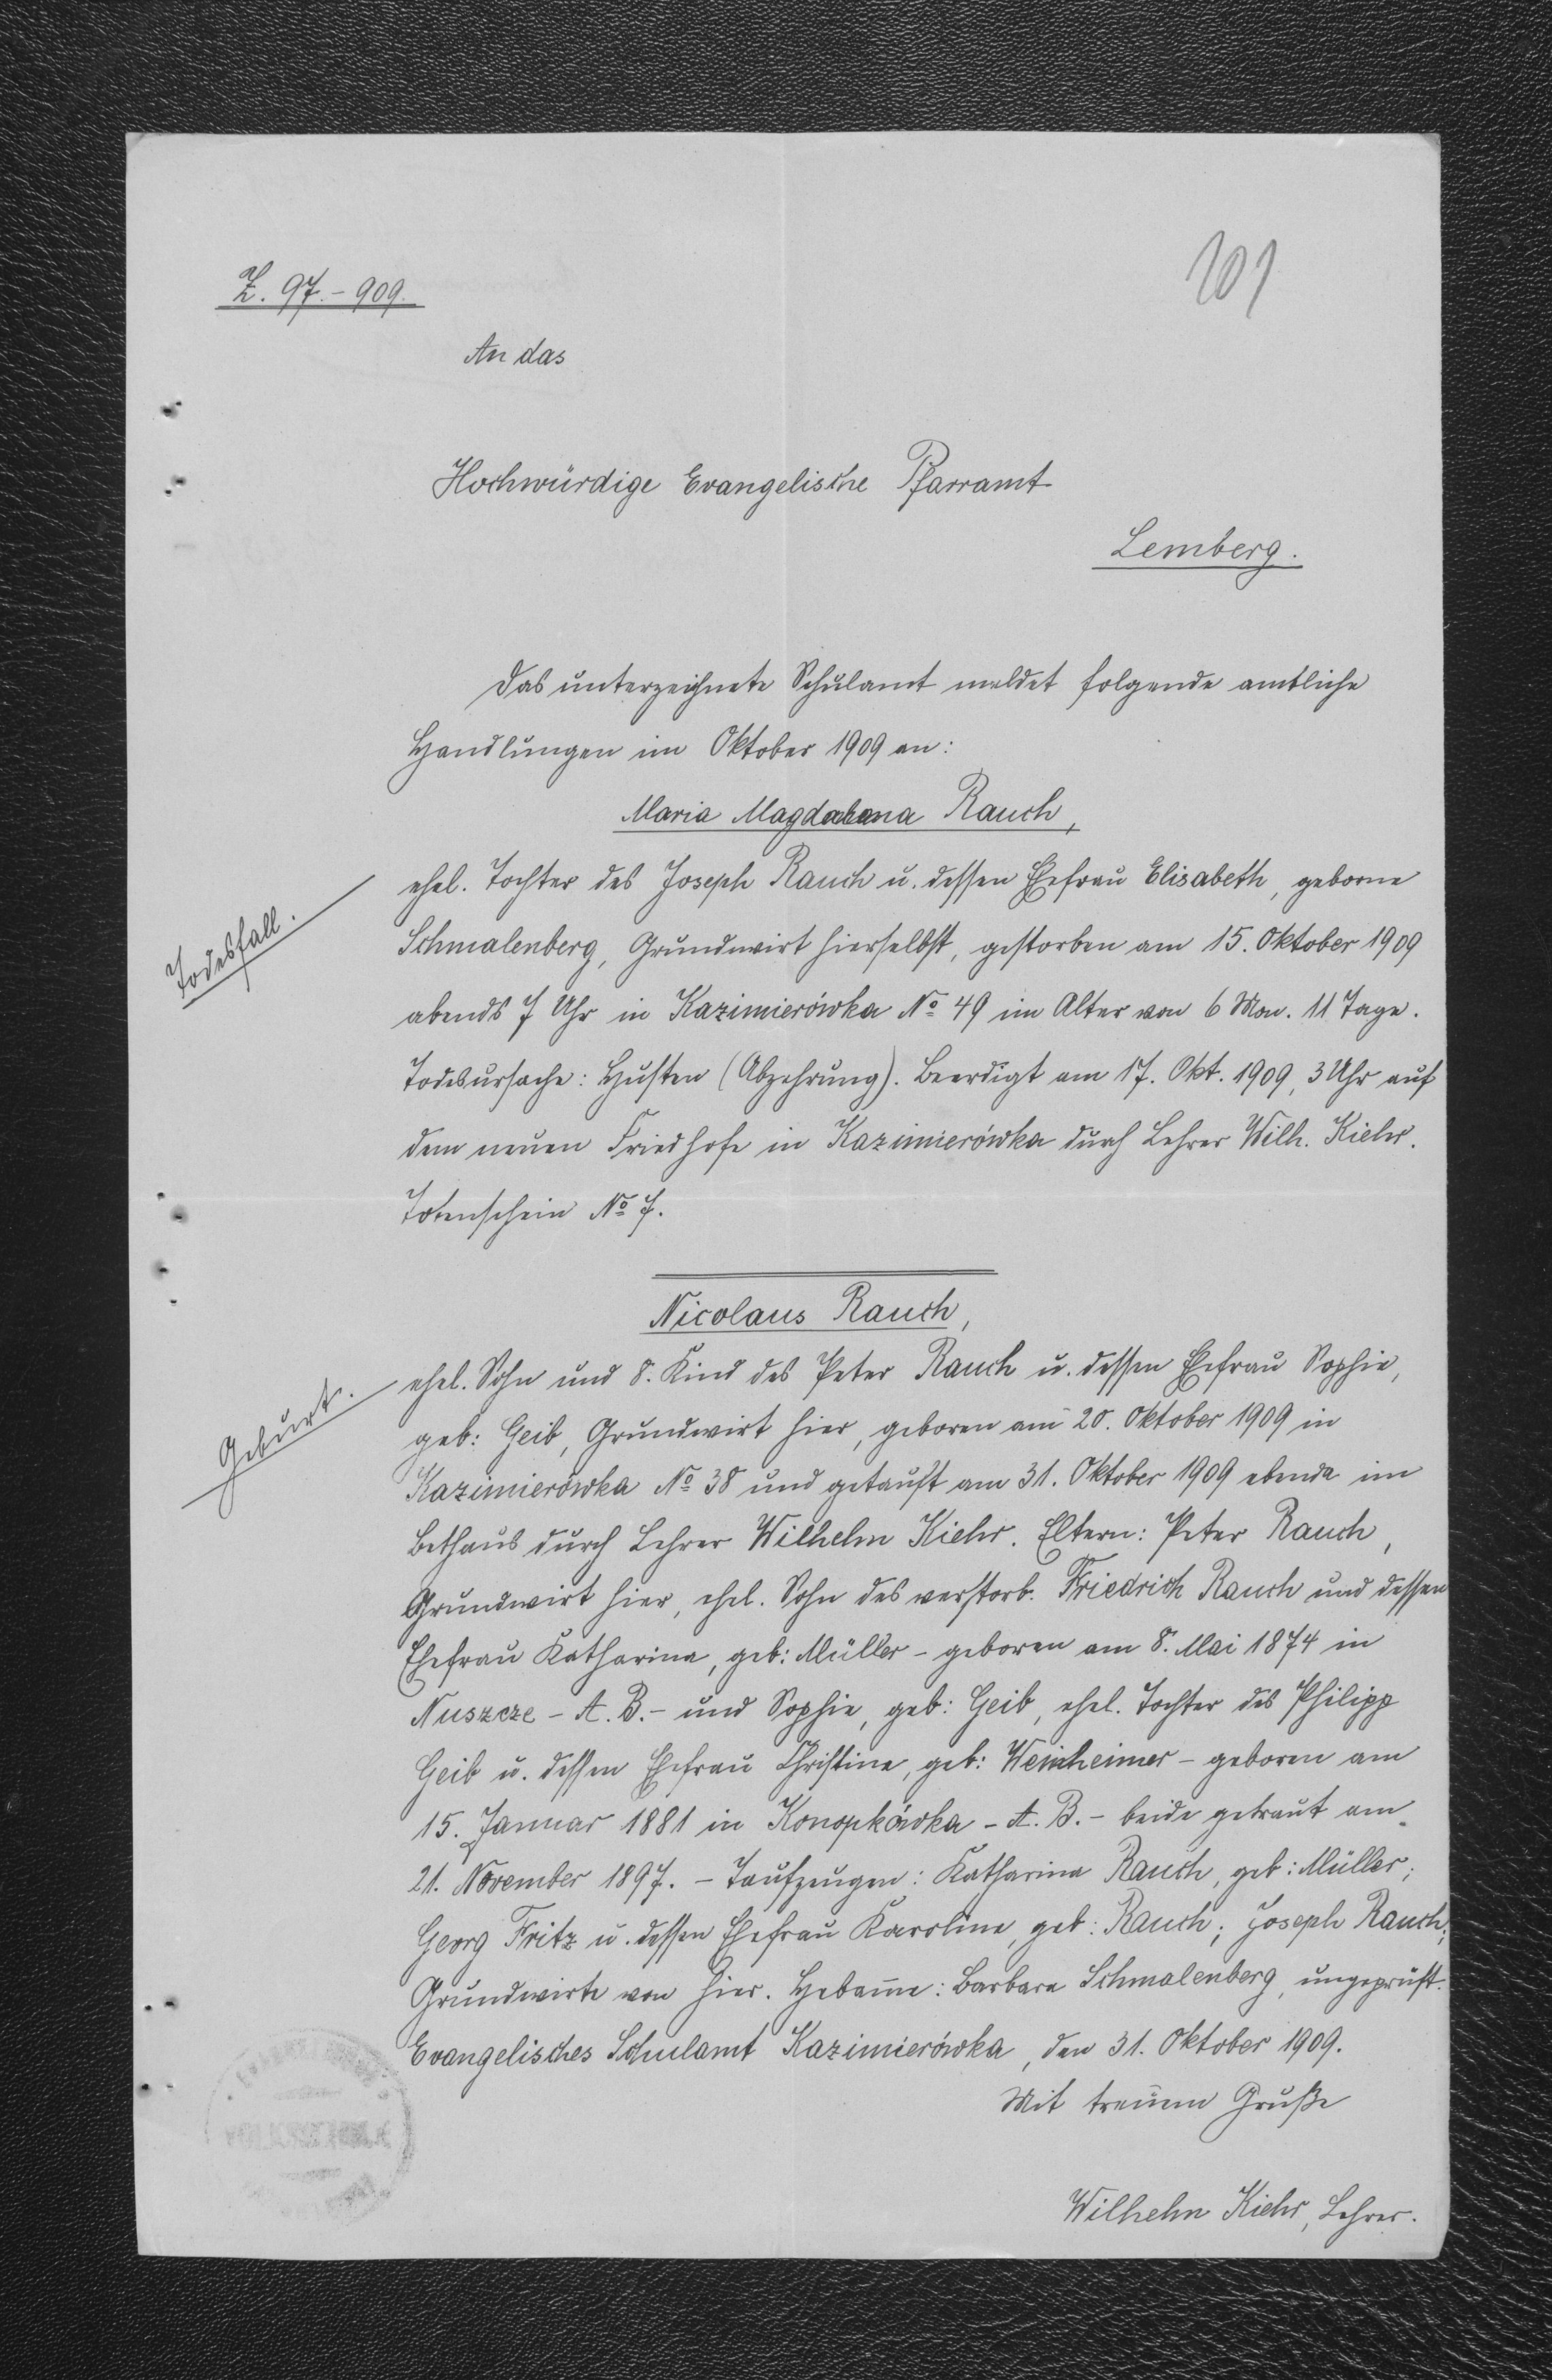 101
Z. 97.-909.
An das
Hochwürdige Evangelische Pfarramt
Lemberg.
Das unterzeichnete Schulamt meldet folgende amtliche
Handlungen im Oktober 1909 an:
Maria Magdalena Rauch,
Todesfall.
ehel. Tochter des Joseph Rauch u. dessen Ehefrau Elisabeth, geborne
Schmalenberg, Grundwirt hierselbst, gestorben am 15. Oktober 1909
abends 7 Uhr in Kazimierówka No 49 im Alter von 6 Mon. 11 Tage.
Todesursache: Husten (Abzehrung). Beerdigt am 17. Okt. 1909, 3 Uhr auf
dem neuen Friedhofe in Kazimierówka durch Lehrer Wilh. Kiehr.
Totenschein No 7.
Nicolaus Rauch,
Geburt.
ehel. Sohn und 8. Kind des Peter Rauch u. dessen Ehefrau Sophie,
geb: Geib, Grundwirt hier, geboren am 20. Oktober 1909 in
Kazimierówka No 38 und getauft am 31. Oktober 1909 ebenda im
Bethaus durch Lehrer Wilhelm Kiehr. Eltern: Peter Rauch,
Grundwirt hier, ehel. Sohn des verstorb. Friedrich Rauch und dessen
Ehefrau Katharina, geb: Müller - geboren am 8. Mai 1874 in
Nuszcze - A. B. - und Sophie, geb: Geib, ehel. Tochter des Philipp
Geib u. dessen Ehefrau Christine, geb: Weinheimer - geboren am
15. Januar 1881 in Konopkówka - A. B. - beide getraut am
21. November 1897. - Taufzeugen: Katharina Rauch, geb: Müller;
Georg Fritz u. dessen Ehefrau Karoline, geb: Rauch; Joseph Rauch;
Grundwirte von hier. Hebam̄e: Barbara Schmalenberg, ungeprüft.
Evangelisches Schulamt Kazimierówka, den 31. Oktober 1909.
Mit treuem Gruße
Wilhelm Kiehr, Lehrer.